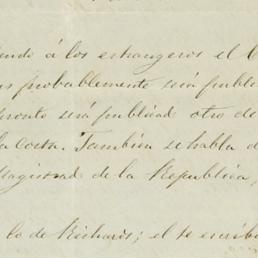 endo á los estrangeros el C
us probablemente será publi
pronto será publicad otro de
la Costa. Tambien se habla d
Magistrad de la Republica,
lo de Richards; el te escribi